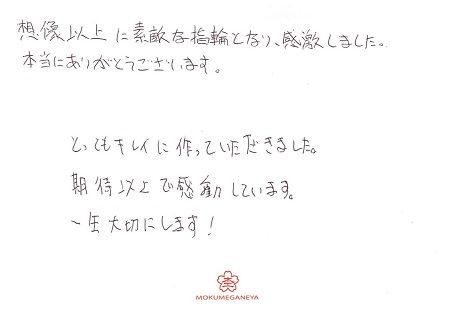 想像以上に素敵な指輪となり、感激しました。
本当にありがとうございます。
とってもキレイに作っていただきました。
期待以上で感動しています。
一生大切にします!
MOKUMEGANEYA